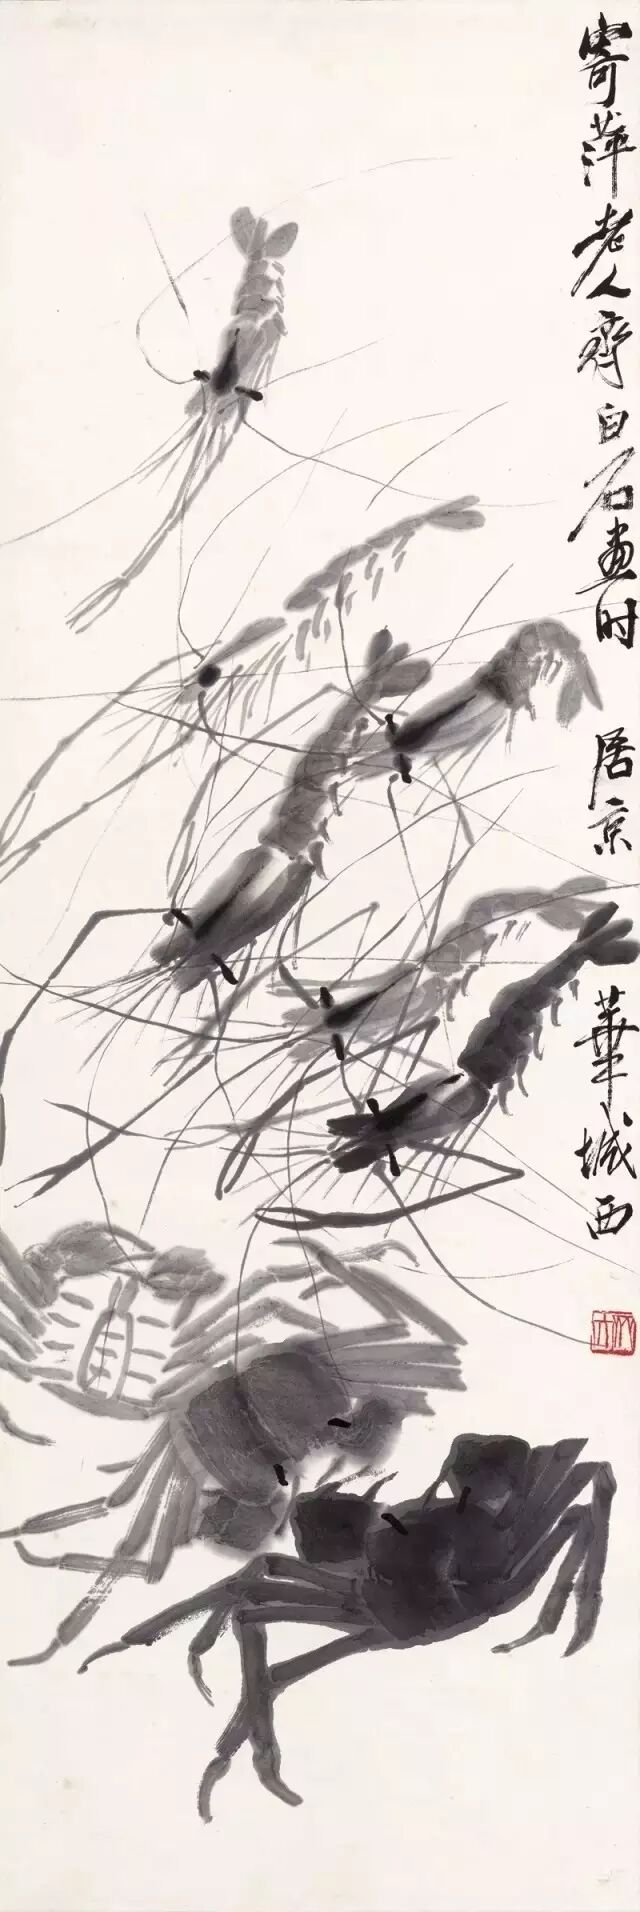 寄萍老人齊白石畫时居京華城西
木人